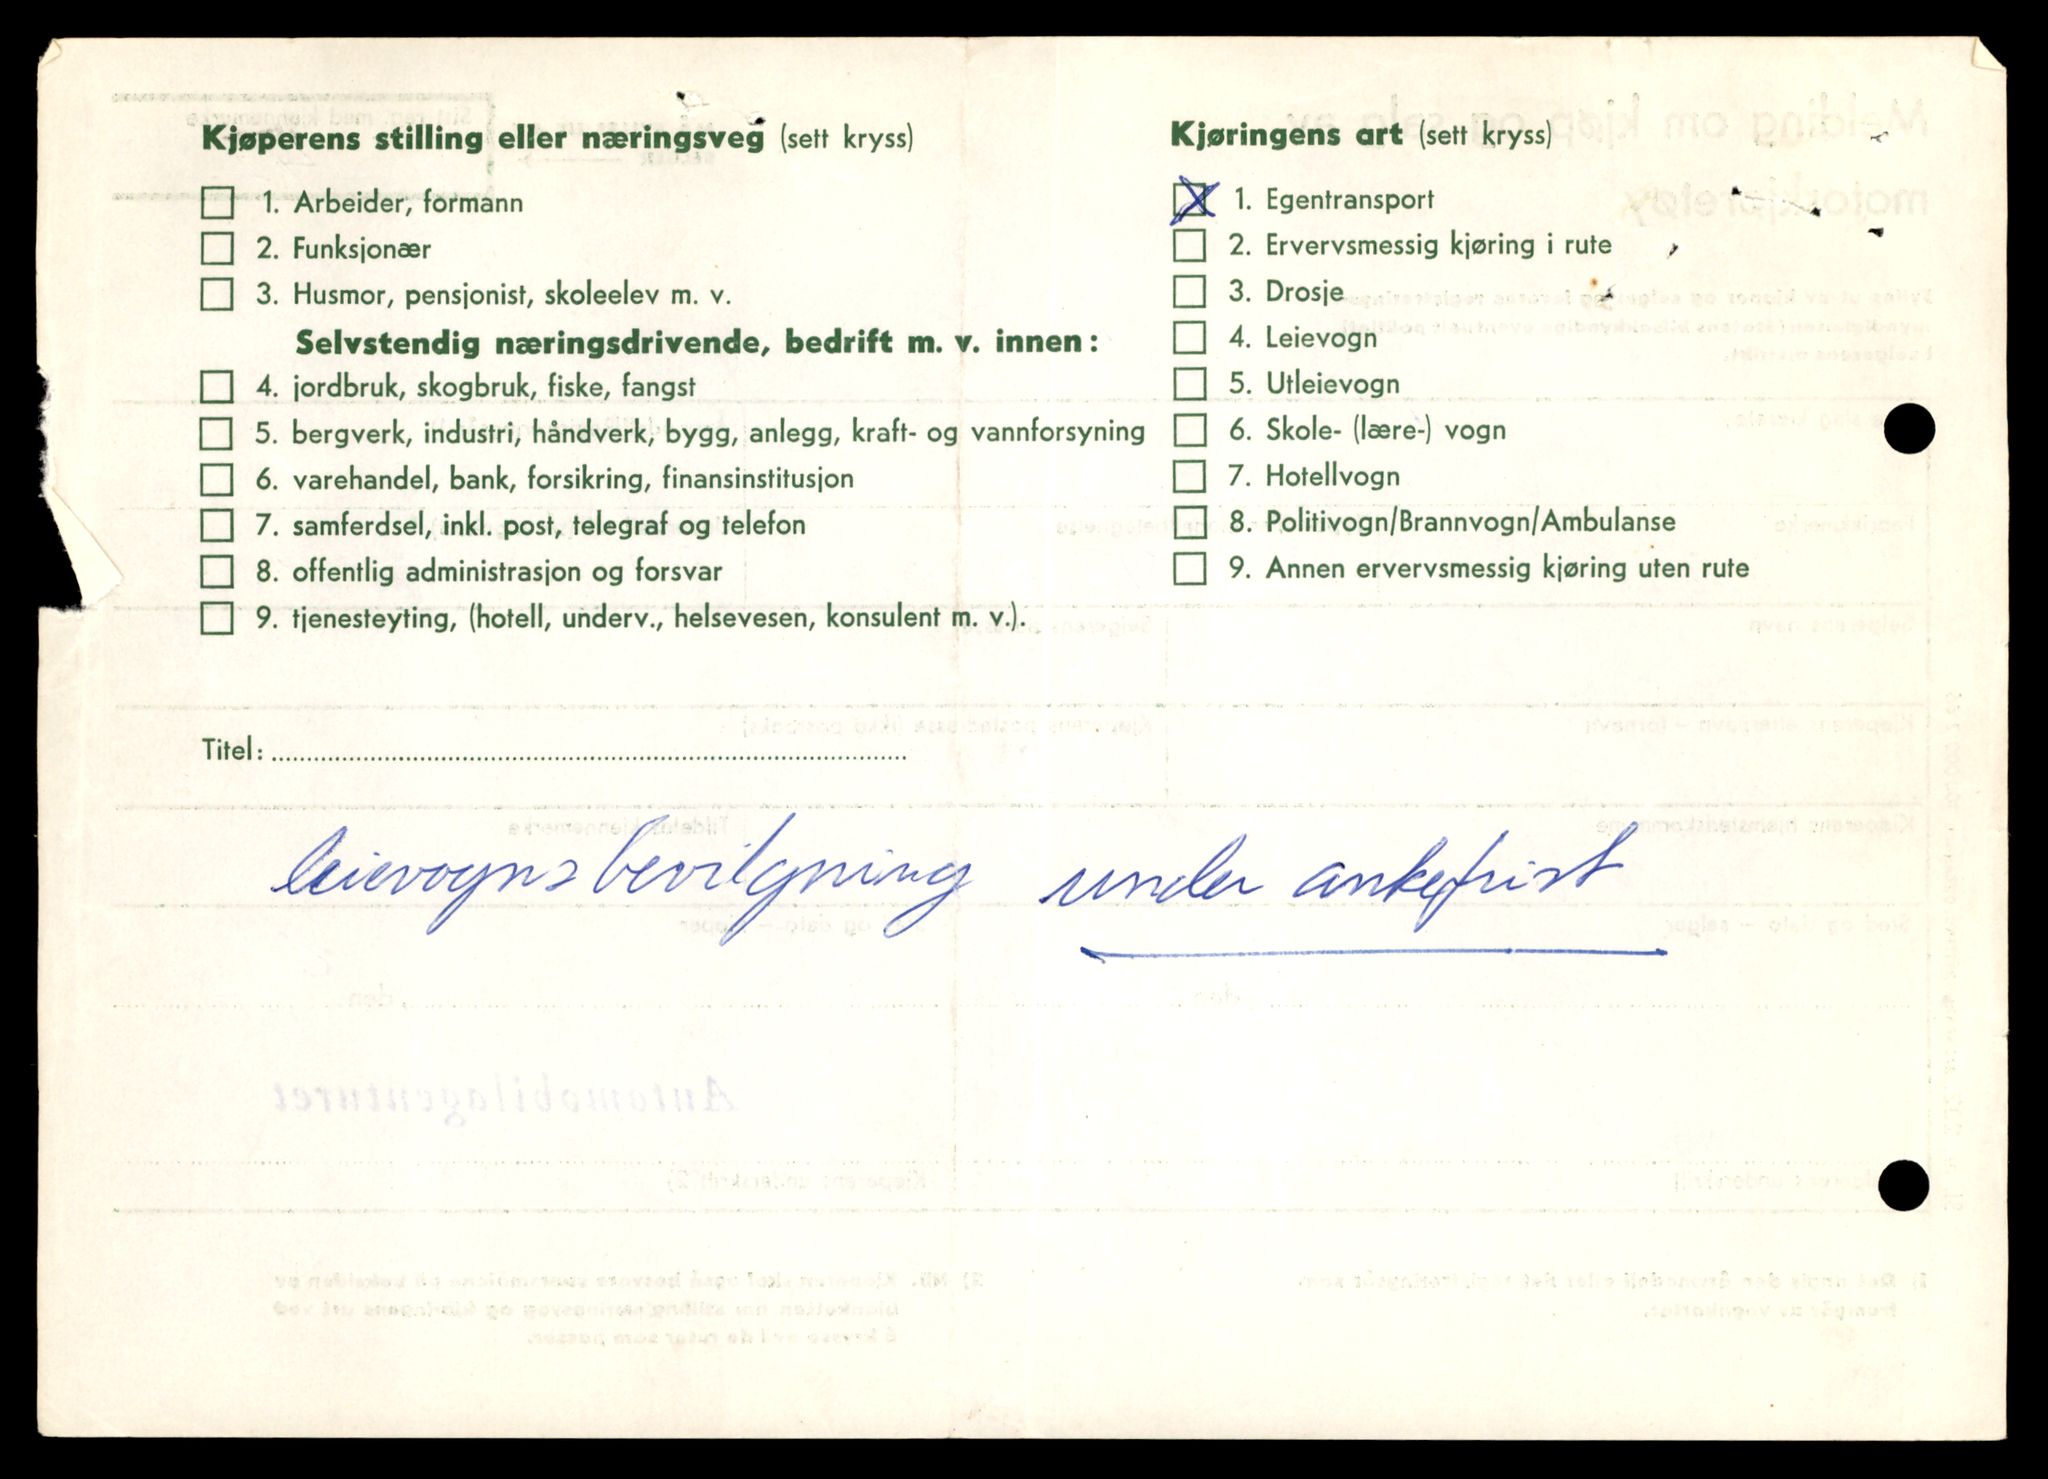 Kjøperens stilling eller næringsveg (sett kryss)
1. Arbeider, formann
2. Funksjonær
3. Husmor, pensjonist, skoleelev m. v.
Selvstendig næringsdrivende, bedrift m. v. innen:
4. jordbruk, skogbruk, fiske, fangst
5. bergverk, industri, håndverk, bygg, anlegg, kraft- og vannforsyning
6. varehandel, bank, forsikring, finansinstitusjon
7. samferdsel, inkl. post, telegraf og telefon
8. offentlig administrasjon og forsvar
9. tjenesteyting, (hotell, underv., helsevesen, konsulent m. v.).
Titel:
Kjøringens art (sett kryss)
X 1. Egentransport
2. Ervervsmessig kjøring i rute
3. Drosje
4. Leievogn
5. Utleievogn
6. Skole- (lære-) vogn
7. Hotellvogn
8. Politivogn/Brannvogn/Ambulanse
9. Annen ervervsmessig kjøring uten rute
leievognsbevilgning under ankefrist